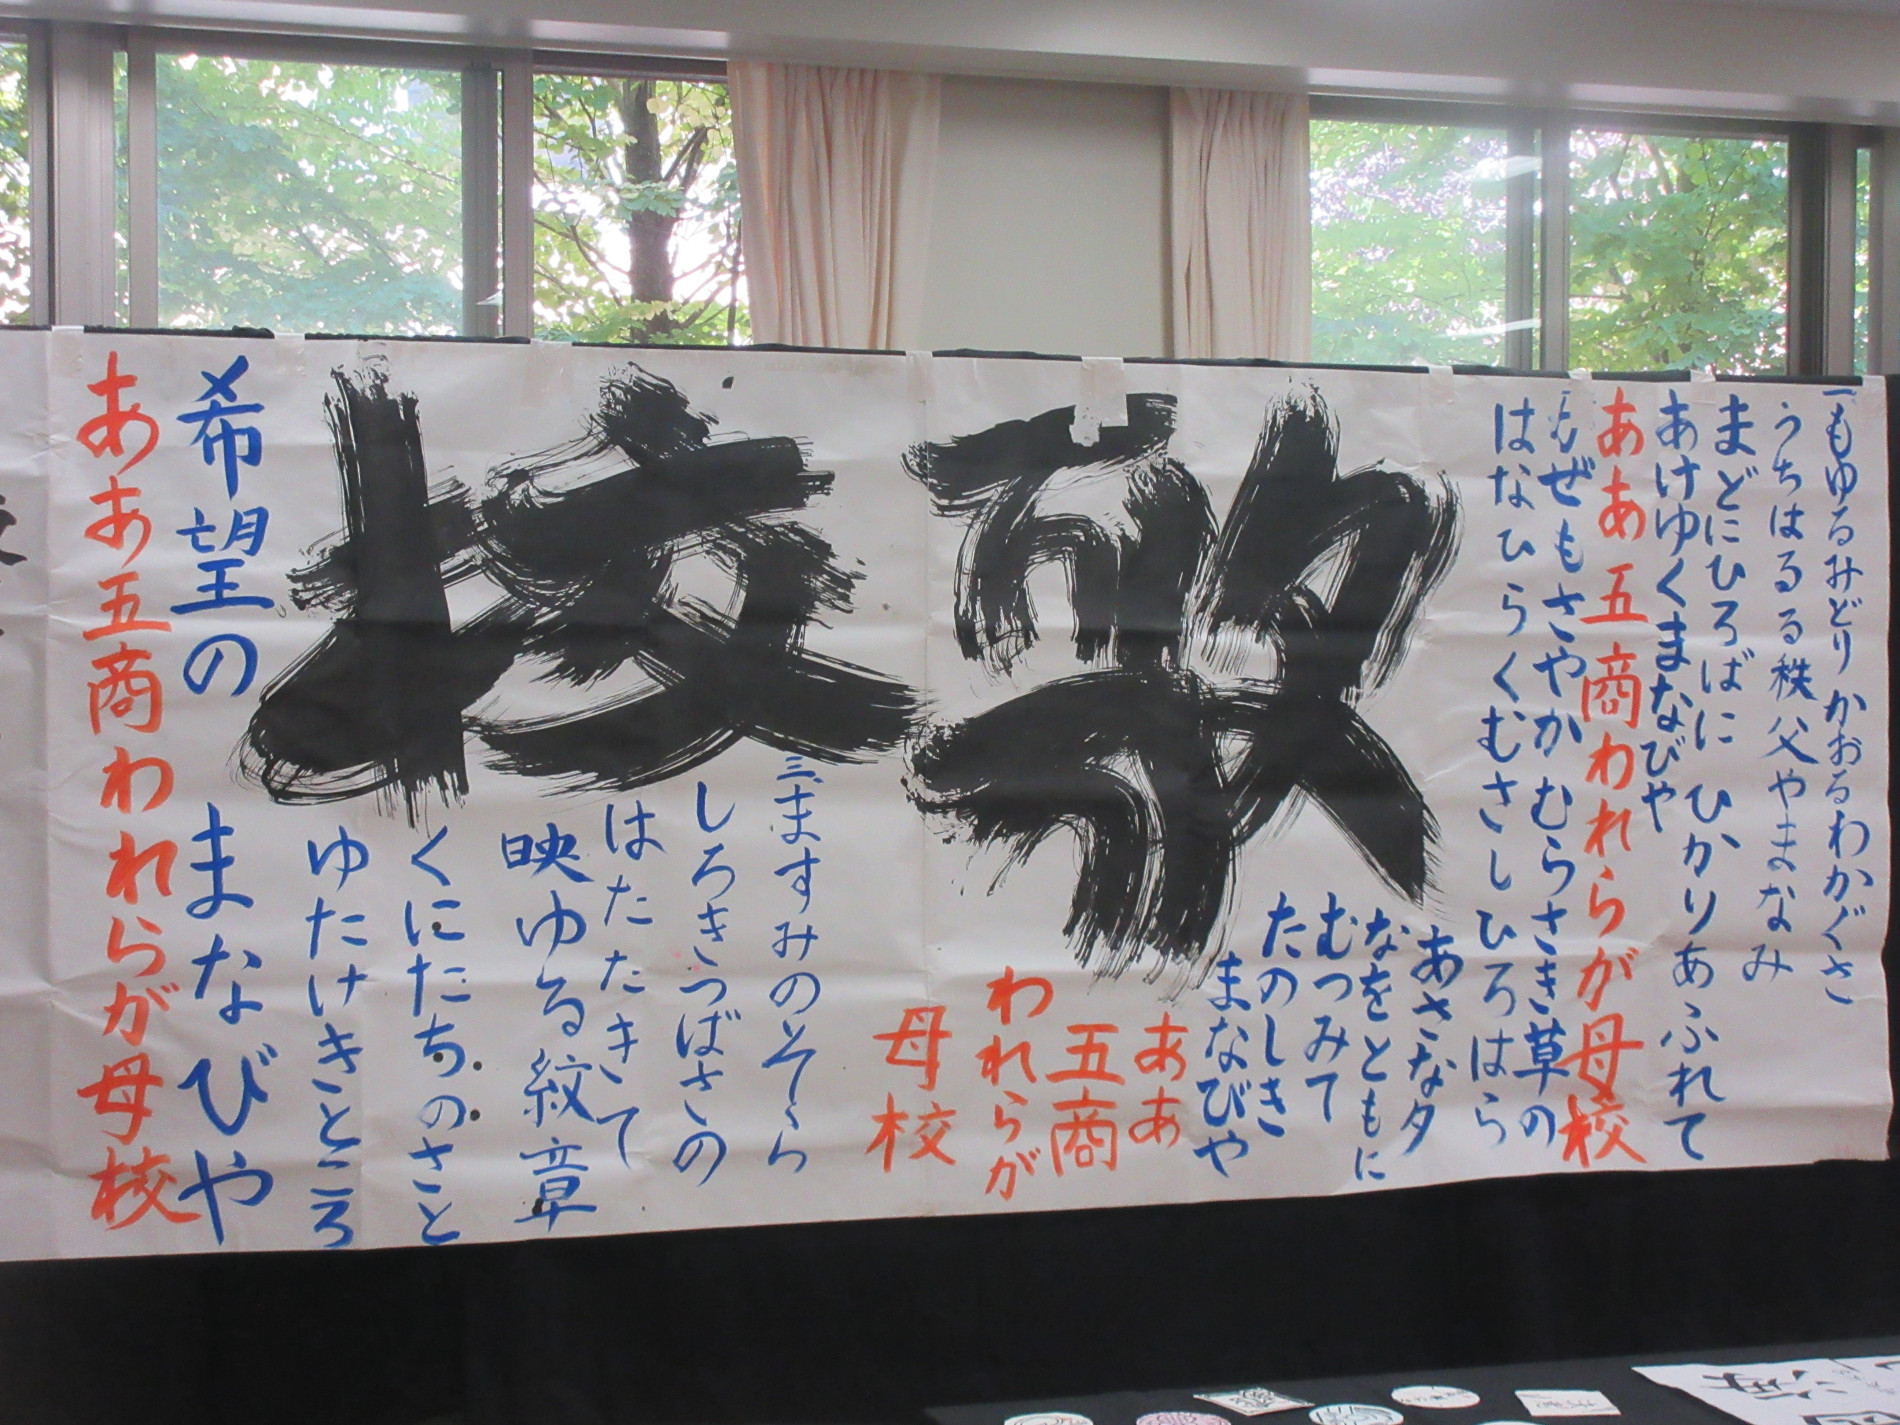 校歌
一もゆるみどり かおるわかぐさ
うちはるる秩父やまなみ
まどにひろばに ひかりあふれて
あけゆくまなびや
ああ五商われらが母校
ぜもさやか むらさき草の
はなひらくむさしひろはら
あさな夕
なをともに
むつみて
たのしき
まなびや
ああ
五商
われらが
母校
三、ますみのそら
しろきつばさの
はたたきて
映ゆる紋章
くにたちのさと
ゆたけきところ
希望の まなびや
ああ五商われらが母校